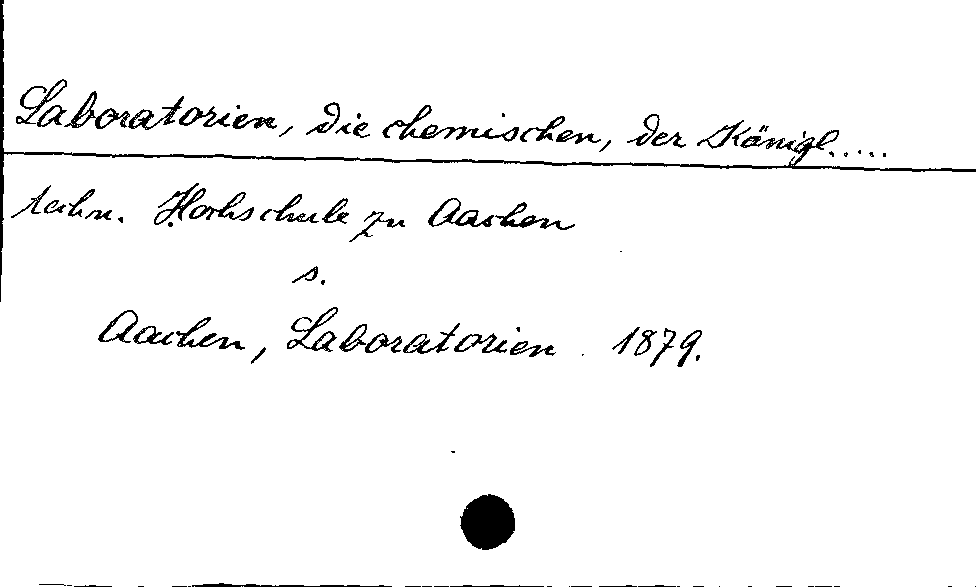 Laboratorien, die chemischen, der Königl.....
techn. Hochschule zu Aachen
s.
Aachen, Laboratorien 1879.